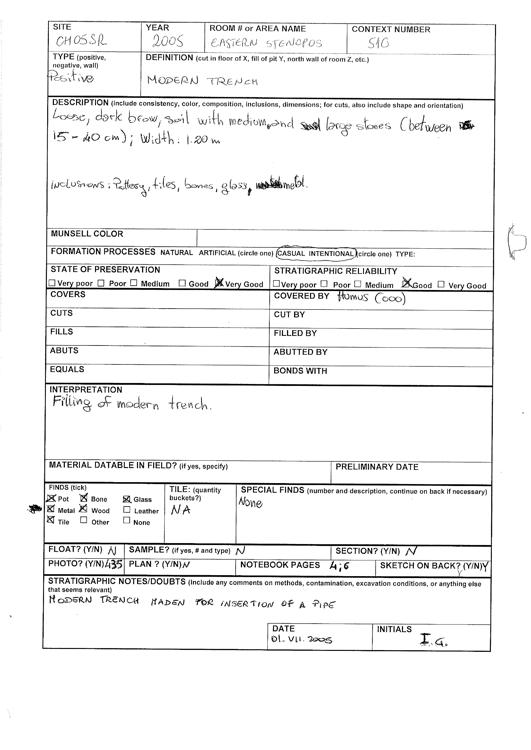 SITE YEAR ROOM # or AREA NAME CONTEXT NUMBER
CHOSSR 2005 EASTERN STENOPOS 510
TYPE (positive, negative, wall) DEFINITION (cut in floor of X, fill of pit Y, north wall of room Z, etc.)
Positive MODERN TRENCH
DESCRIPTION (include consistency, color, composition, inclusions, dimensions; for cuts, also include shape and orientation)
Loose, dark brow, soil with medium, and large stones (between
15-40 cm); Width: 1.20 m
inclusions: Pottery, tiles, bones, glass, metal.
MUNSELL COLOR
FORMATION PROCESSES NATURAL ARTIFICIAL (circle one) CASUAL INTENTIONAL (circle one) TYPE:
STATE OF PRESERVATION STRATIGRAPHIC RELIABILITY
☐ Very poor ☐ Poor ☐ Medium ☐ Good ☒ Very Good ☐ Very poor ☐ Poor ☐ Medium ☒ Good ☐ Very Good
COVERS COVERED BY Humus (000)
CUTS CUT BY
FILLS FILLED BY
ABUTS ABUTTED BY
EQUALS BONDS WITH
INTERPRETATION
Filling of modern trench.
MATERIAL DATABLE IN FIELD? (if yes, specify) PRELIMINARY DATE
FINDS (tick) TILE: (quantity buckets?) SPECIAL FINDS (number and description, continue on back if necessary)
☒ Pot ☒ Bone ☒ Glass NA None
☒ Metal ☒ Wood ☐ Leather
☒ Tile ☐ Other ☐ None
FLOAT? (Y/N) N SAMPLE? (if yes, # and type) N SECTION? (Y/N) N
PHOTO? (Y/N) 435 PLAN ? (Y/N) N NOTEBOOK PAGES 4;6 SKETCH ON BACK? (Y/N) Y
STRATIGRAPHIC NOTES/DOUBTS (Include any comments on methods, contamination, excavation conditions, or anything else
that seems relevant)
MODERN TRENCH MADEN FOR INSERTION OF A PIPE
DATE INITIALS
01.VII.2005 I.G.